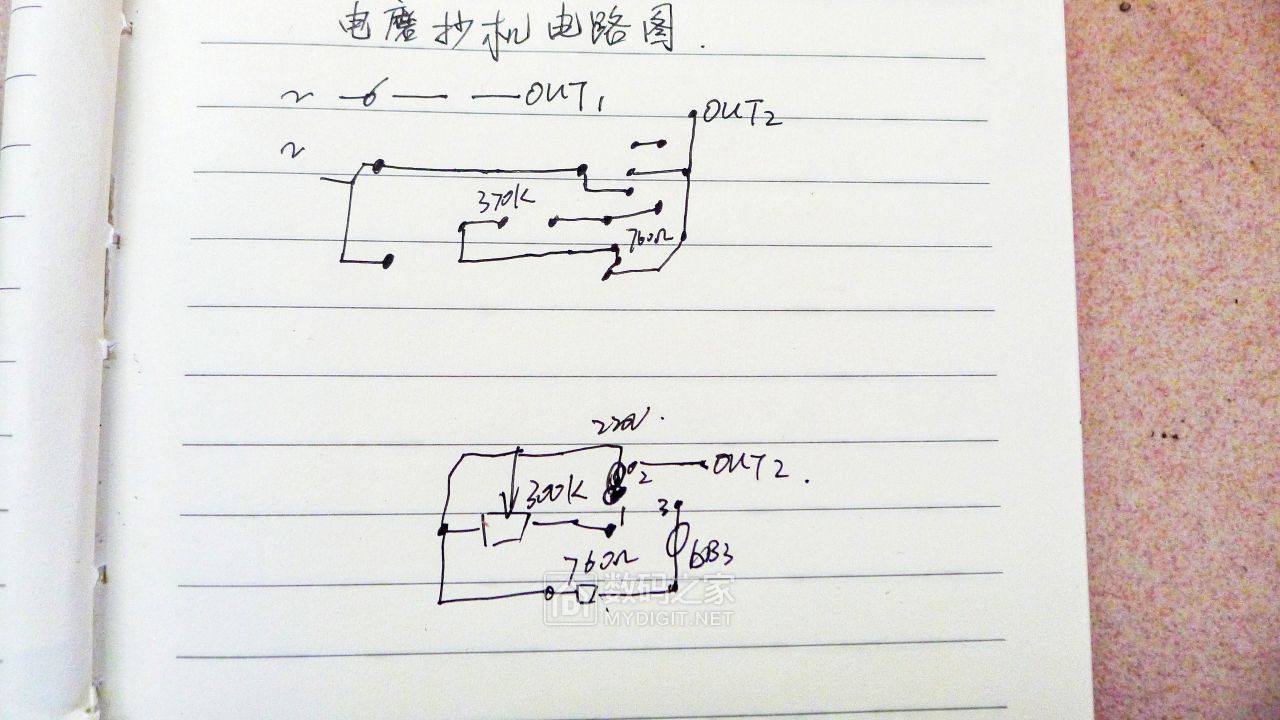 电磨抄机电路图.
~ OUT1
OUT2
~
370K
760Ω
220V.
2 OUT2.
300K
1
3
760Ω
6B3
数码之家
MYDIGIT.NET